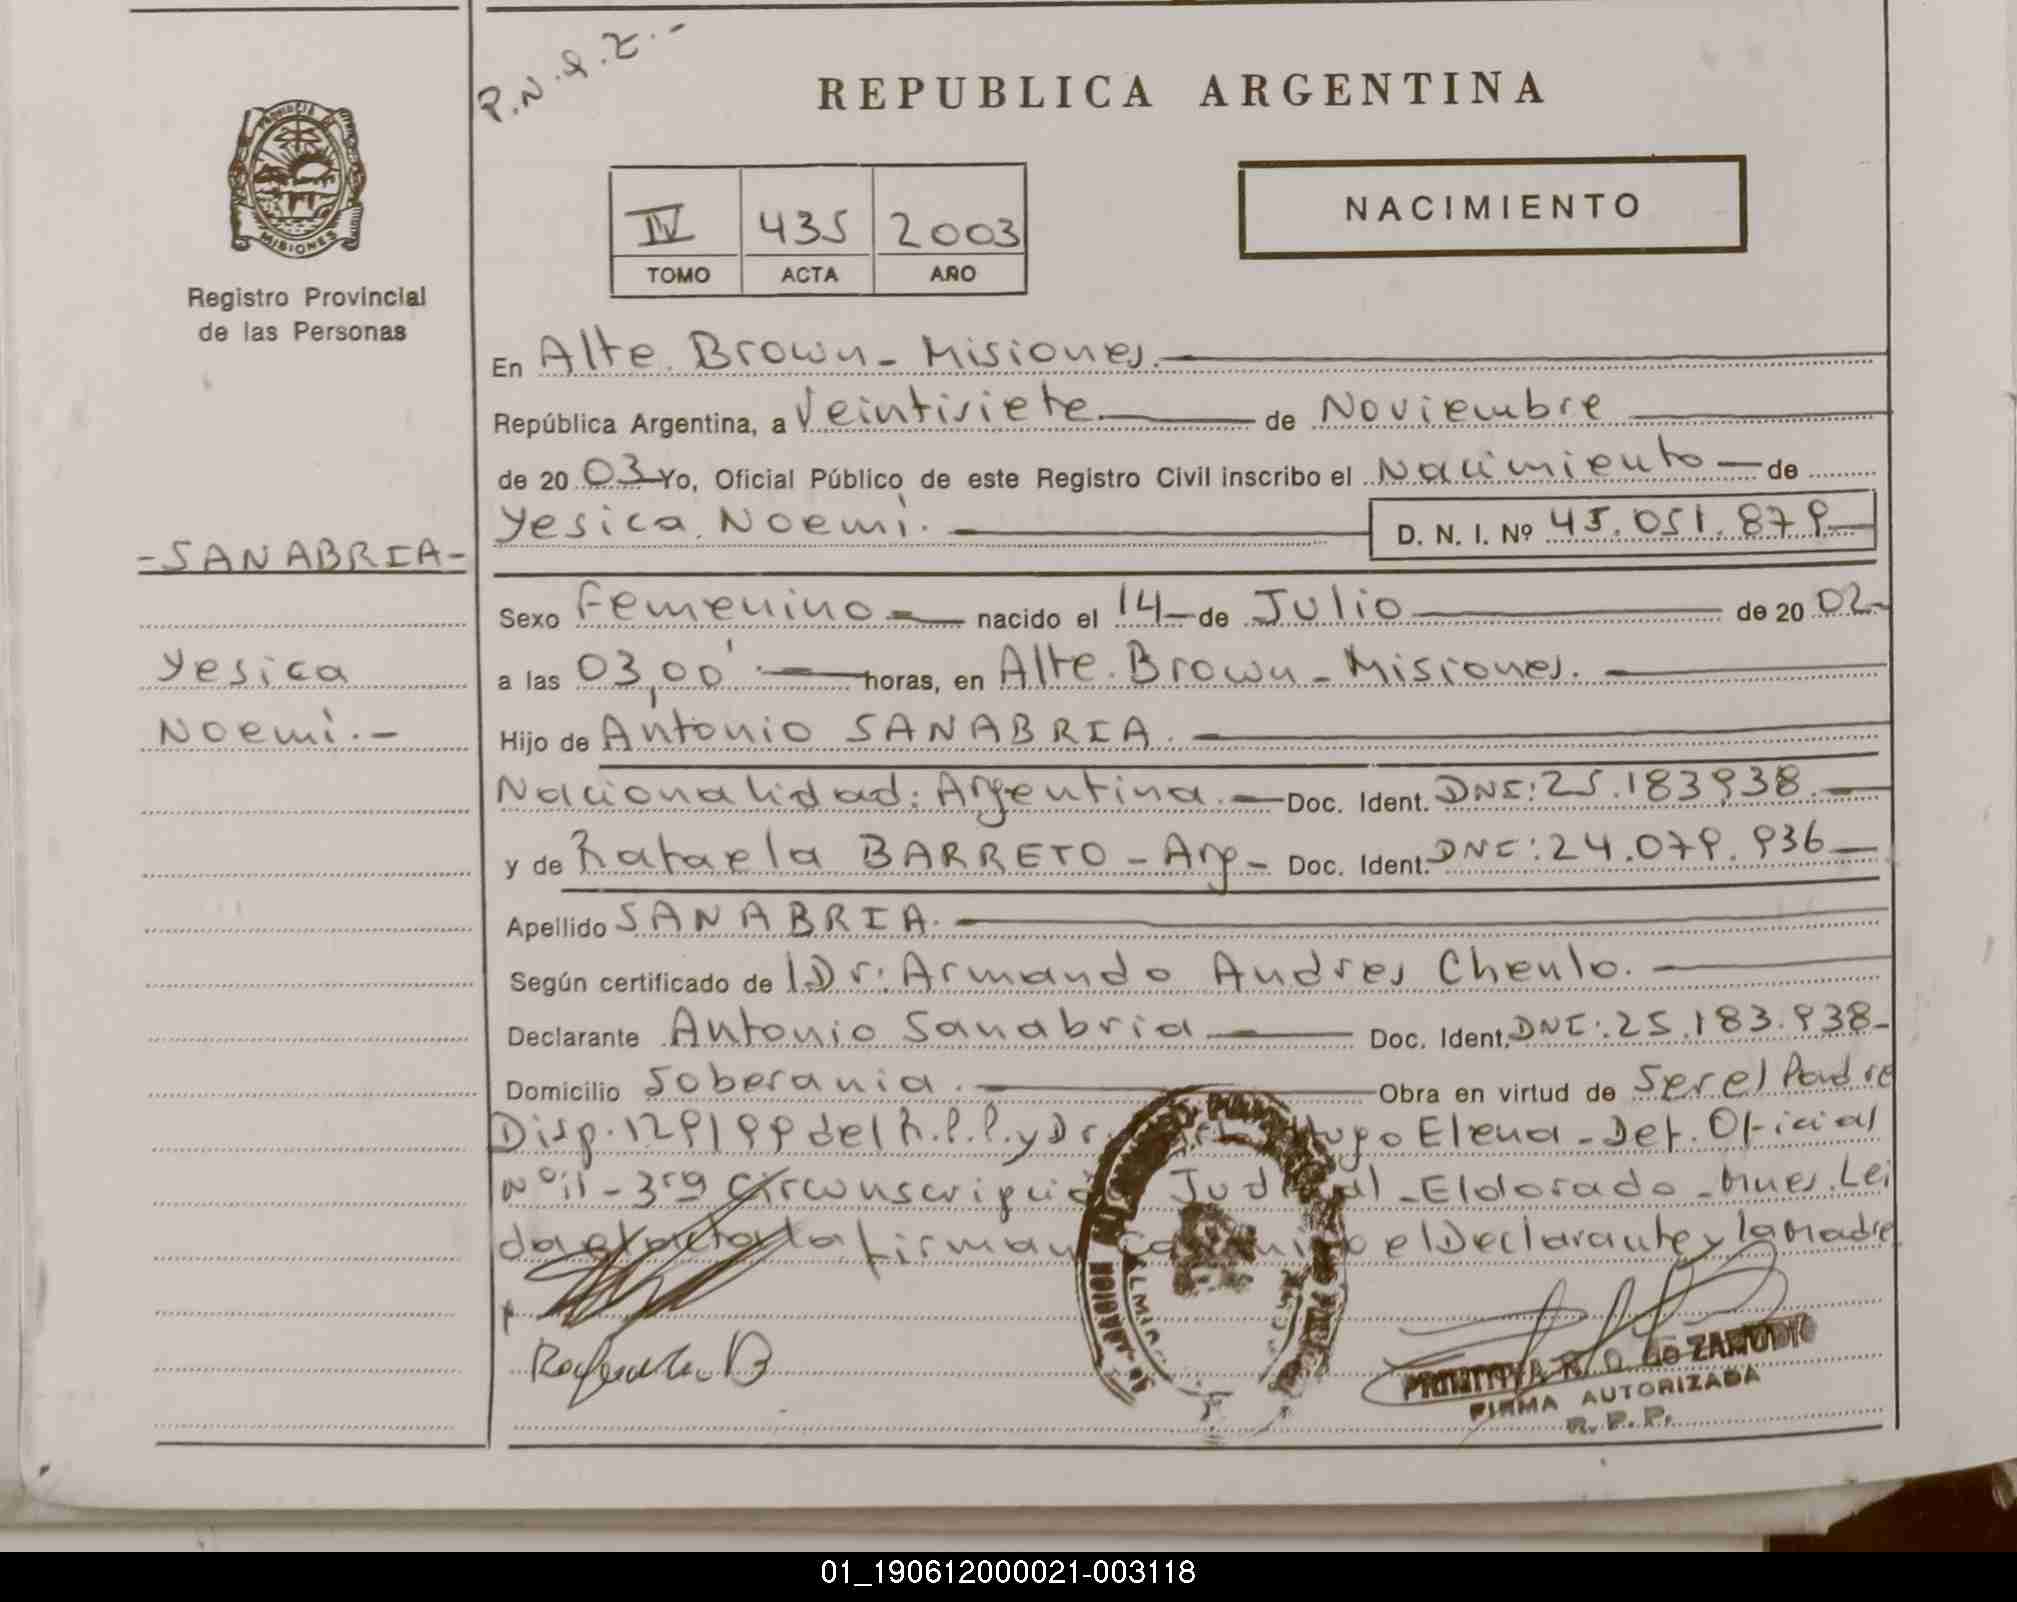 P.N.&.Z.-
REPUBLICA ARGENTINA
NACIMIENTO
IV 435 2003
TOMO ACTA AÑO
PROVINCIA DE
MISIONES
Registro Provincial
de las Personas
En Alte. Brown - Misiones.
República Argentina, a Veintisiete de Noviembre
de 20 03 Yo, Oficial Público de este Registro Civil inscribo el Nacimiento de
Yesica Noemí. D. N. I. Nº 45.051.879
-SANABRIA-
Yesica
Noemí.-
Sexo Femenino nacido el 14 de Julio de 20 02-
a las 03,00' horas, en Alte. Brown - Misiones.
Hijo de Antonio SANABRIA.
Nacionalidad: Argentina. Doc. Ident. DNI: 25.183938.
y de Rafaela BARRETO - Arg- Doc. Ident. DNI: 24.079.936
Apellido SANABRIA.
Según certificado de Dr: Armando Andres Chenlo.
Declarante Antonio Sanabria Doc. Ident. DNI: 25.183.938-
Domicilio Soberania. Obra en virtud de Ser el Padre
Disp. 129/99 del R.P.P. y Dr. Hugo Elena - Def. Oficial
Nº 11 - 3ra Circunscripción Judicial - Eldorado - Mnes. Lei
da el acta la firman conmigo el Declarante y la Madre
Rafaela. B
ZAMUDIO
FIRMA AUTORIZADA
R. P. P.
01_190612000021-003118